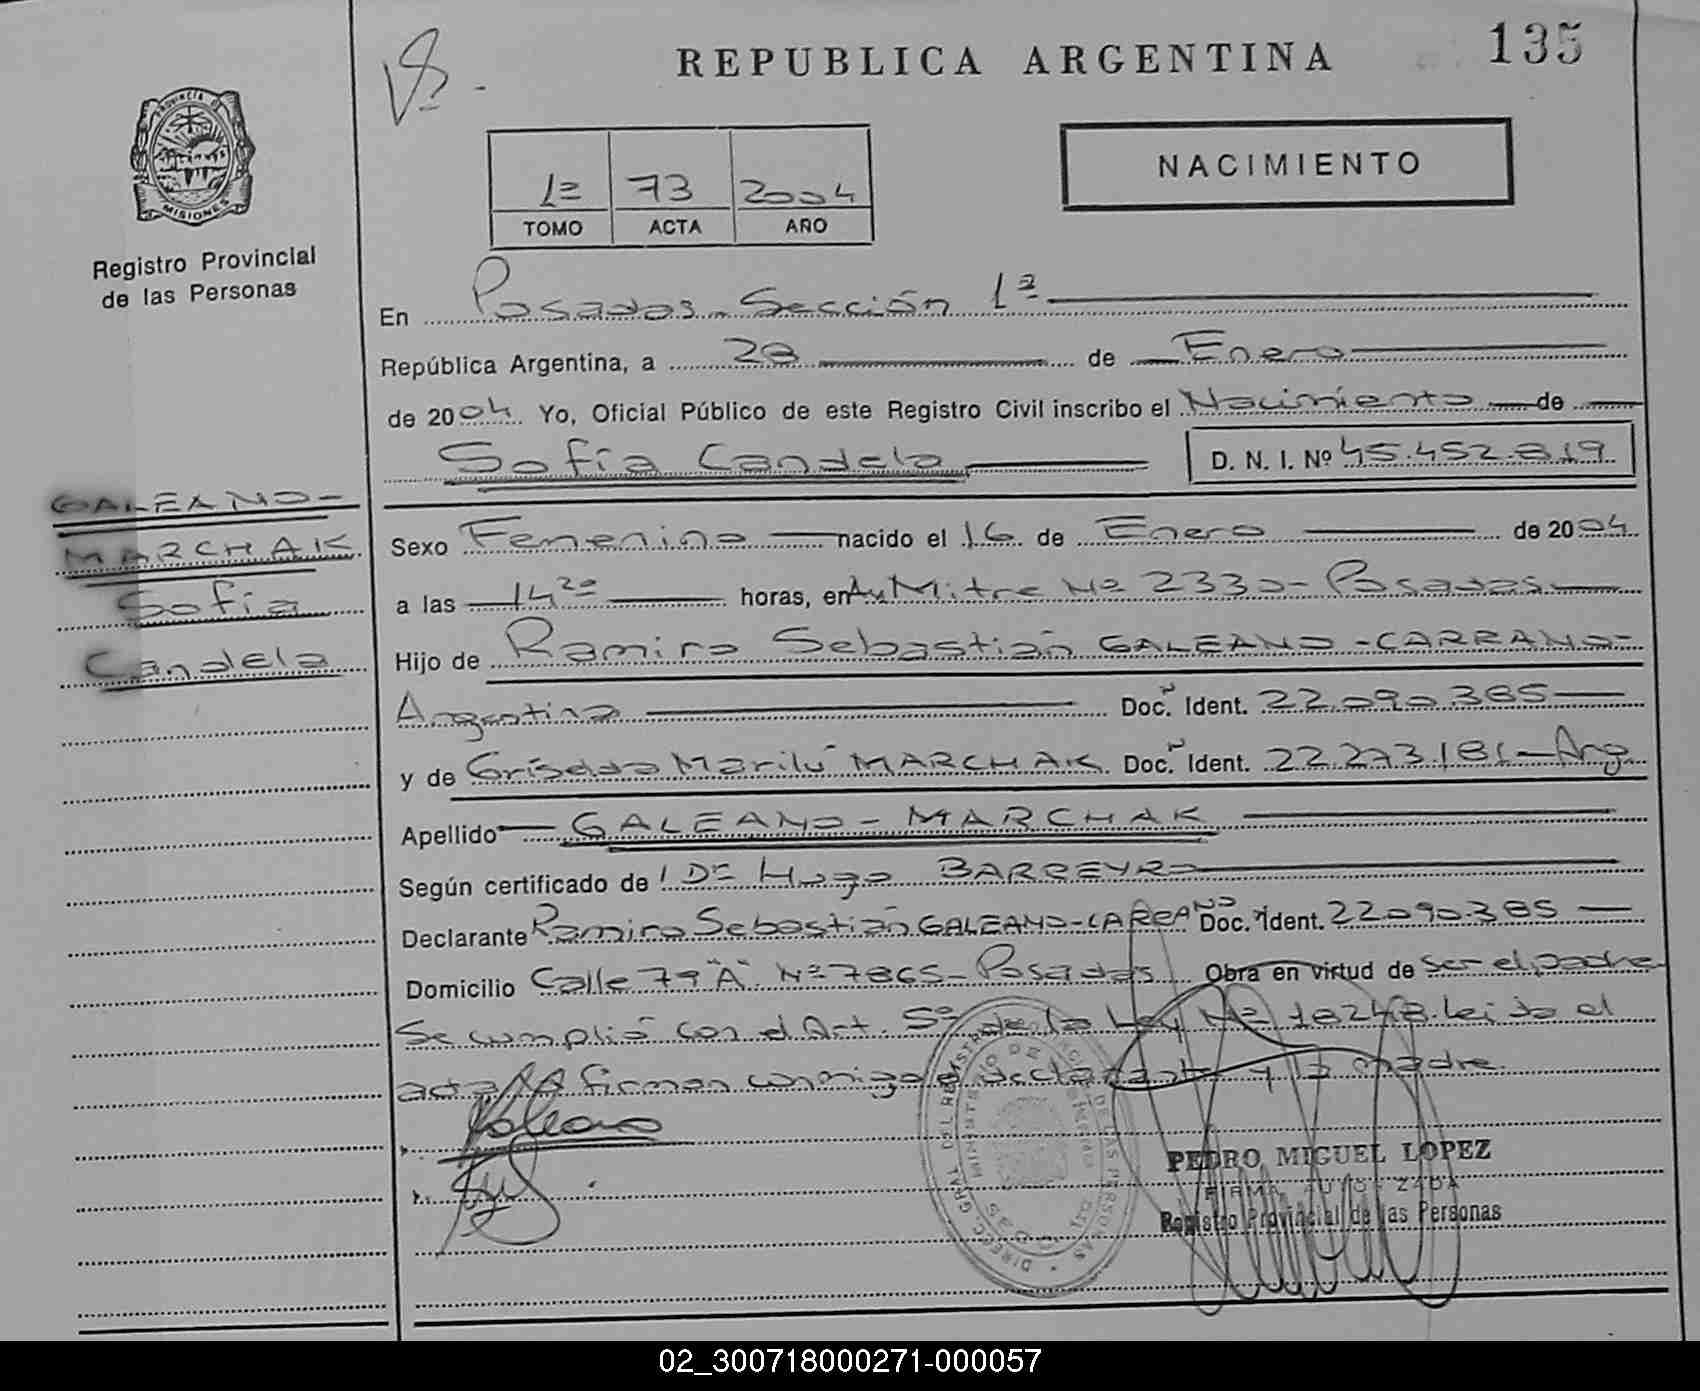 REPUBLICA ARGENTINA
135
PROVINCIA DE
MISIONES
Registro Provincial
de las Personas
1º 73 2004
TOMO ACTA AÑO
NACIMIENTO
En Posadas - Sección 1ª
República Argentina, a 28 de Enero
de 2004. Yo, Oficial Público de este Registro Civil inscribo el Nacimiento de
Sofía Candela D. N. I. Nº 45.452.819
GALEANO-
MARCHAK
Sofía
Candela
Sexo Femenino nacido el 16 de Enero de 2004
a las 14²⁰ horas, en Av. Mitre Nº 2330 - Posadas
Hijo de Ramiro Sebastián GALEANO - CARRANO-
Argentino Doc. Ident. 22.090.385
y de Griselda Marilú MARCHAK Doc. Ident. 22.273.181 - Arg.
Apellido GALEANO - MARCHAK
Según certificado de Dr Hugo BARREYRO
Declarante Ramiro Sebastián GALEANO - CARRANO Doc. Ident. 22.090.385
Domicilio Calle 79 "A" Nº 7865 - Posadas Obra en virtud de ser el padre
Se cumplió con el Art. 5º de la Ley Nº 18248. Leido el
acta firman conmigo el declarante y la madre.
PEDRO MIGUEL LOPEZ
FIRMA AUTORIZADA
Registro Provincial de las Personas
02_300718000271-000057